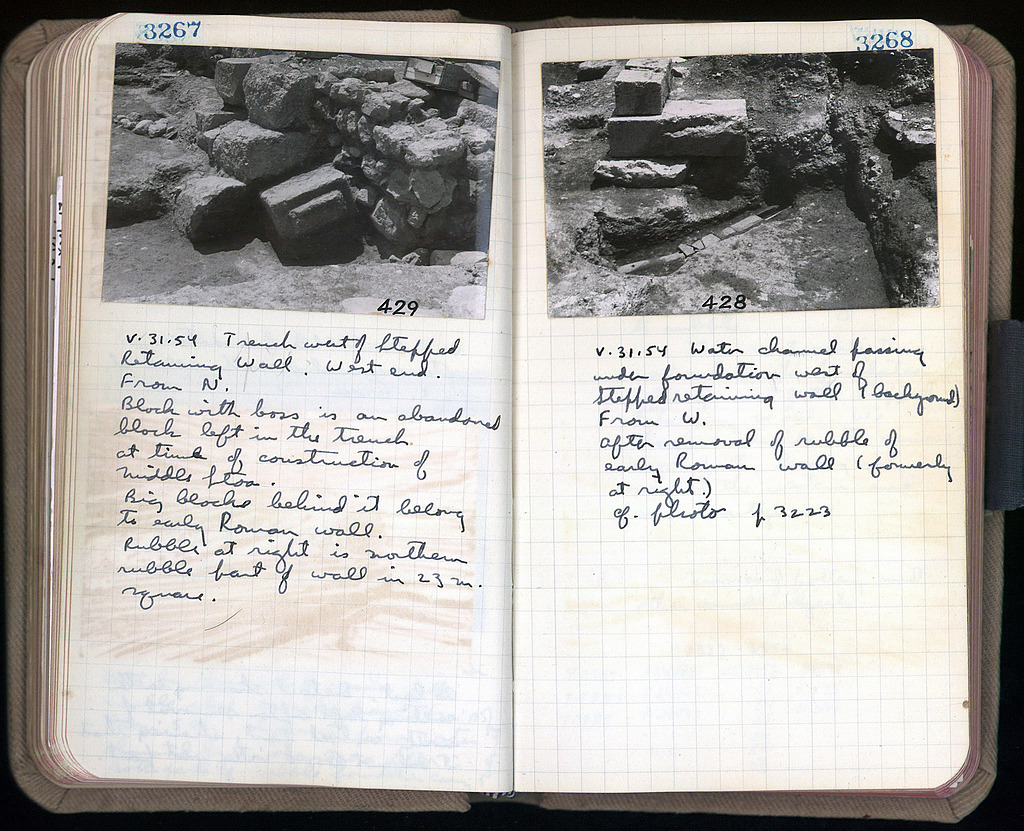 3267
429
V.31.54 Trench west of Stepped
Retaining Wall. West end.
From N.
Block with boss is an abandoned
block left in the trench
at time of construction of
Middle Stoa.
Big blocks behind it belong
to early Roman wall.
Rubble at right is northern
rubble part of wall in 23 m.
square.
3268
428
V.31.54 Water channel passing
under foundation west of
Stepped retaining wall (background)
From W.
after removal of rubble of
early Roman wall (formerly
at right.)
cf. photo p 3223